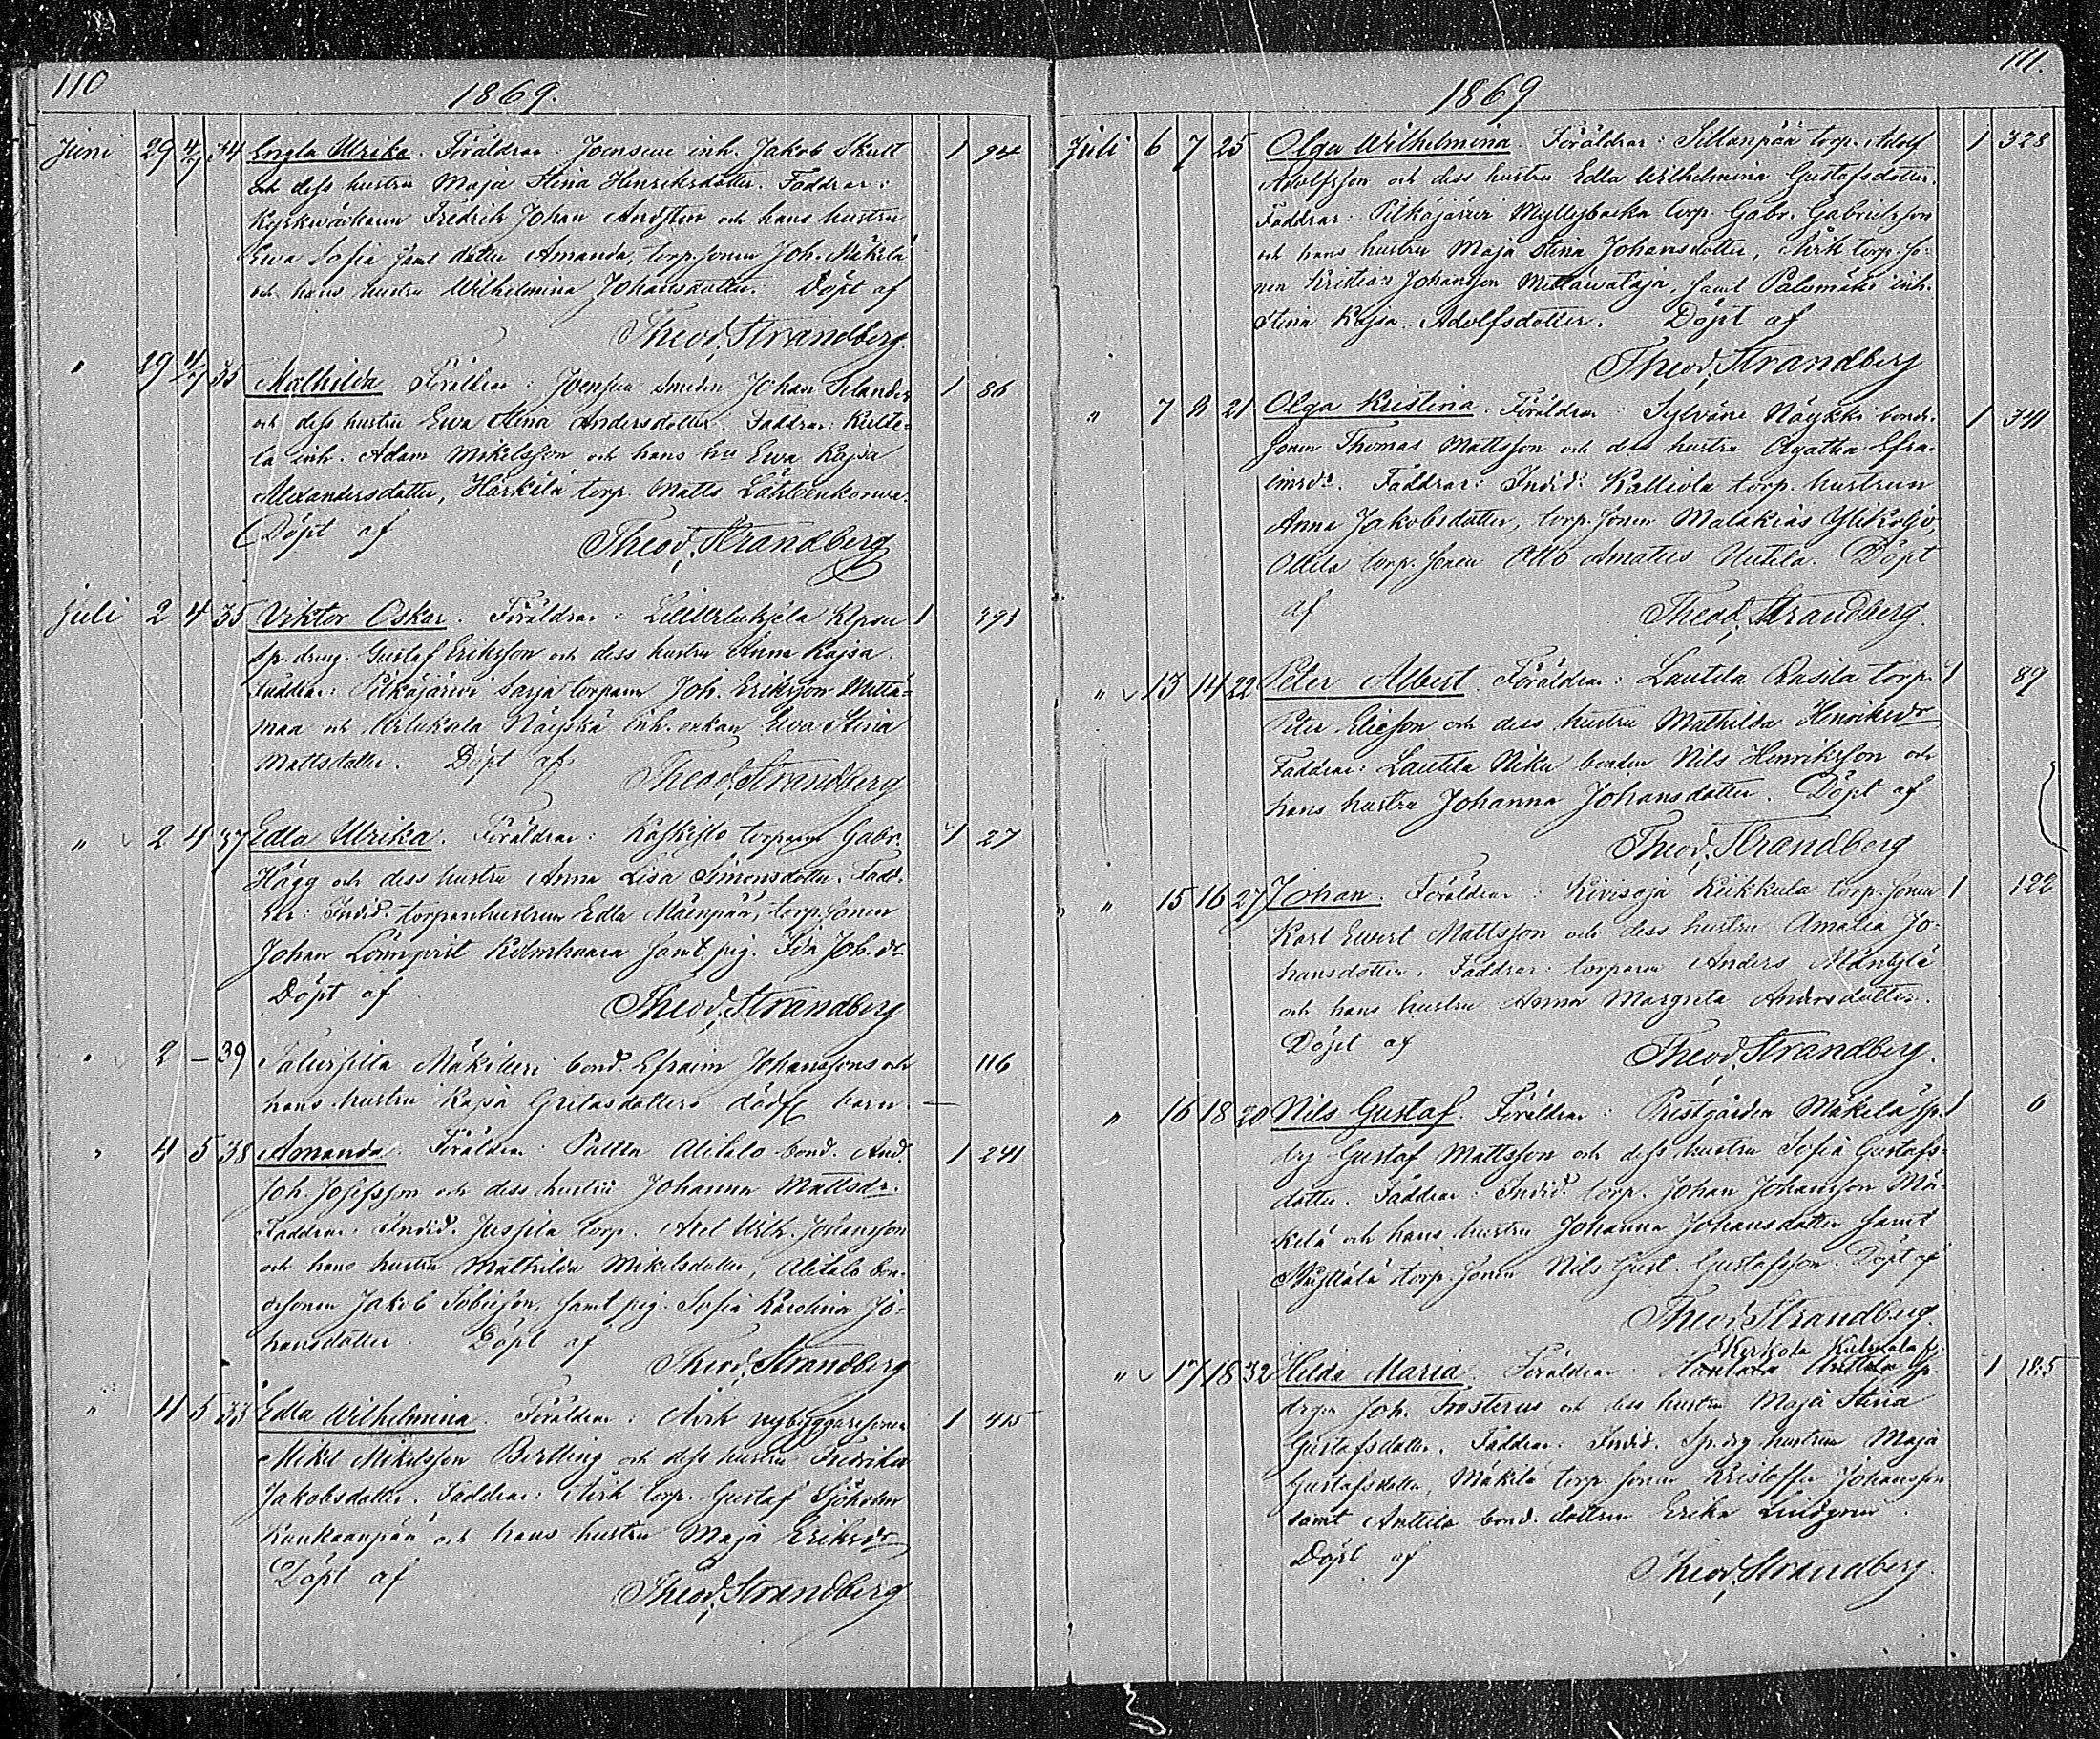 110
1869.
Juni 29 4/7 34 Engla Ulrika. Föräldrar: Joensuu inh. Jakob Skutt 1 94
och dess hustru Maja Stina Henriksdotter. Faddrar:
Kyrkwäktaren Fredrik Johan och hans hustru
Ewa Sofia samt dotter Amanda, torp.sonen Joh. Mäkelä
och hans hustru Wilhelmina Johansdotter. Döpt af
Theod. Strandberg.
" 29 4/7 35 Mathilda. Föräldrar: Joensuu smeden Johan Selander 1 86
och dess hustru Ewa Stina Andersdotter. Faddrar:
inh. Adam Mikelsson och hans hu Ewa Kajsa
Alexandersdotter, Härkälä torp. Matts Lähteenkorwa.
Döpt af Theod. Strandberg
Juli 2 4 35 Viktor Oskar. Föräldrar: 1 391
sp. dräng. Gustaf Eriksson och dess hustru Anna Kajsa.
Faddrar: Pitkäjärwi torparn Joh. Eriksson Mettä-
maa och inh. enkan Ewa Stina
Mattsdotter. Döpt af Theod. Strandberg
" 2 4 37 Edla Ulrika. Föräldrar: torparn Gabr. 1 27
Hägg och dess hustru Anna Lisa Simonsdotter. Fadd-
rar: Indid. torparehustrun Edla Mäenpää, torp.sonen
Johan Lönnqvist samt pig. Ida Joh.dr
Döpt af Theod. Strandberg
" 2 – 39 Mäkitieri bond. Efraim Johanssons och 116
hans hustru Kajsa Gretasdotters dödf. barn. —
" 4 5 38 Amanda. Föräldrar: Alitalo bond. And. 1 241
Joh. Josefsson och dess hustru Johanna Mattsdr.
Faddrar: Indid. Jussila torp. Axel Wilh. Johansson
och hans hustru Mathilda Mikelsdotter, Alitalo bon-
desonen Jakob samt pig. Sofia Karolina Jo-
hansdotter. Döpt af Theod. Strandberg
" 4 5 33 Edla Wilhelmina. Föräldrar: nybyggaresonen 1 415
Mikel Mikelsson Bertling och dess hustru Fredrika
Jakobsdotter. Faddrar: torp. Gustaf Sjöholm
Kankaanpää och hans hustru Maja Eriksdr
Döpt af Theod. Strandberg
111.
1869
Juli 6 7 25 Olga Wilhelmina. Föräldrar: Sillanpää torp. Adolf 1 328
Adolfsson och dess hustru Edla Wilhelmina Gustafsdotter.
Faddrar: Pitkäjärwi Myllybacka torp. Gabr. Gabrielsson
och hans hustru Maja Stina Johansdotter, torp. so-
nen Kristian Johansson samt Palomäki inh.
Stina Kajsa Adolfsdotter. Döpt af
Theod. Strandberg
" 7 8 21 Olga Kristina. Föräldrar: Sylväne Näykki bonde- 1 341
sonen Thomas Mattsson och dess hustru Agatha Efra-
imsdr. Faddrar: Indid. Kalliola torp. hustrun
Anna Jakobsdotter, torp. sonen Malakias
torp. sonen Otto Döpt
af Theod. Strandberg.
" 13 14 22 Peter Albert. Föräldrar: Lautela Rasila torp. 1 89
Peter Eliesson och dess hustru Mathilda Henriksdr
Faddrar: Lautela Niku bonden Nils Henriksson och
hans hustru Johanna Johansdotter. Döpt af
Theod. Strandberg
" 15 16 27 Johan. Föräldrar: Kivisoja Kiikkula torp. sonen 1 122
Karl Ewert Mattsson och dess hustru Amalia Jo-
hansdotter. Faddrar: torparn Anders Mäntylä
och hans hustru Anna Margreta Andersdotter.
Döpt af Theod. Strandberg.
" 16 18 20 Nils Gustaf. Föräldrar: Prestgården Mäkelä sp. 1 6
drg Gustaf Mattsson och dess hustru Sofia Gustafs-
dotter. Faddrar: Indid. torp. Johan Johansson Mä-
kelä och hans hustru Johanna Johansdotter samt
torp. sonen Nils Gust. Gustafsson. Döpt af
Theod. Strandberg.
Kerkola
" 17 18 32 Hilda Maria. Föräldrar: Anttila sp. 1 185
drgn Joh. Frosterus och dess hustru Maja Stina
Gustafsdotter. Faddrar: Indid. Sp. drg hustrun Maja
Gustafsdotter, Mäkilä torp. sonen Kristoffer Johansson
samt Anttila bond. dottren Erika Lindgren.
Döpt af Theod. Strandberg.